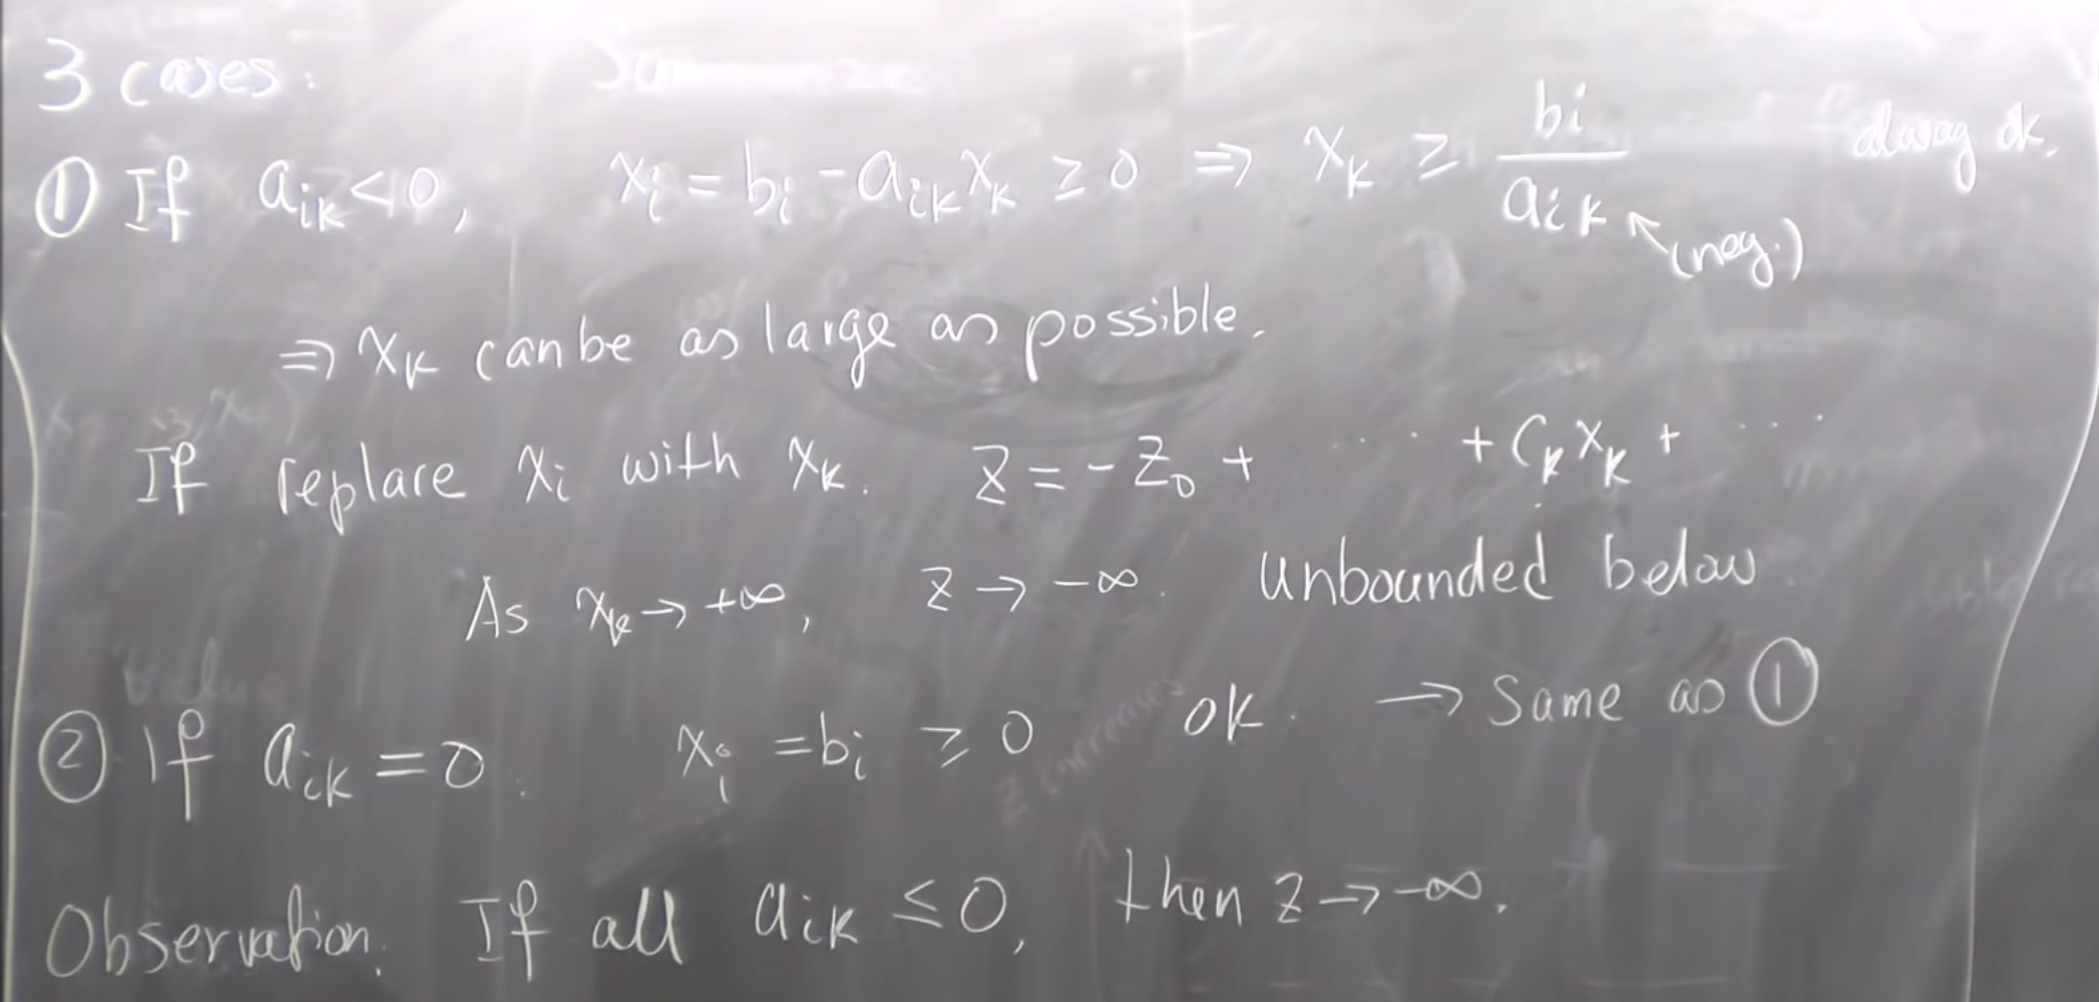 3 cases:
① If aᵢₖ<0, xᵢ = bᵢ - aᵢₖxₖ ≥ 0 ⇒ xₖ ≥ bᵢ/aᵢₖ ↖(neg.) alway ok.
⇒ xₖ can be as large as possible.
If replace xᵢ with xₖ. Z = - Z₀ + ···· + Cₖxₖ + ····
As xₖ → +∞, z → -∞. Unbounded below
② If aᵢₖ = 0. xᵢ = bᵢ ≥ 0 ok. → Same as ①
z increases
Observation. If all aᵢₖ ≤ 0, then z → -∞.